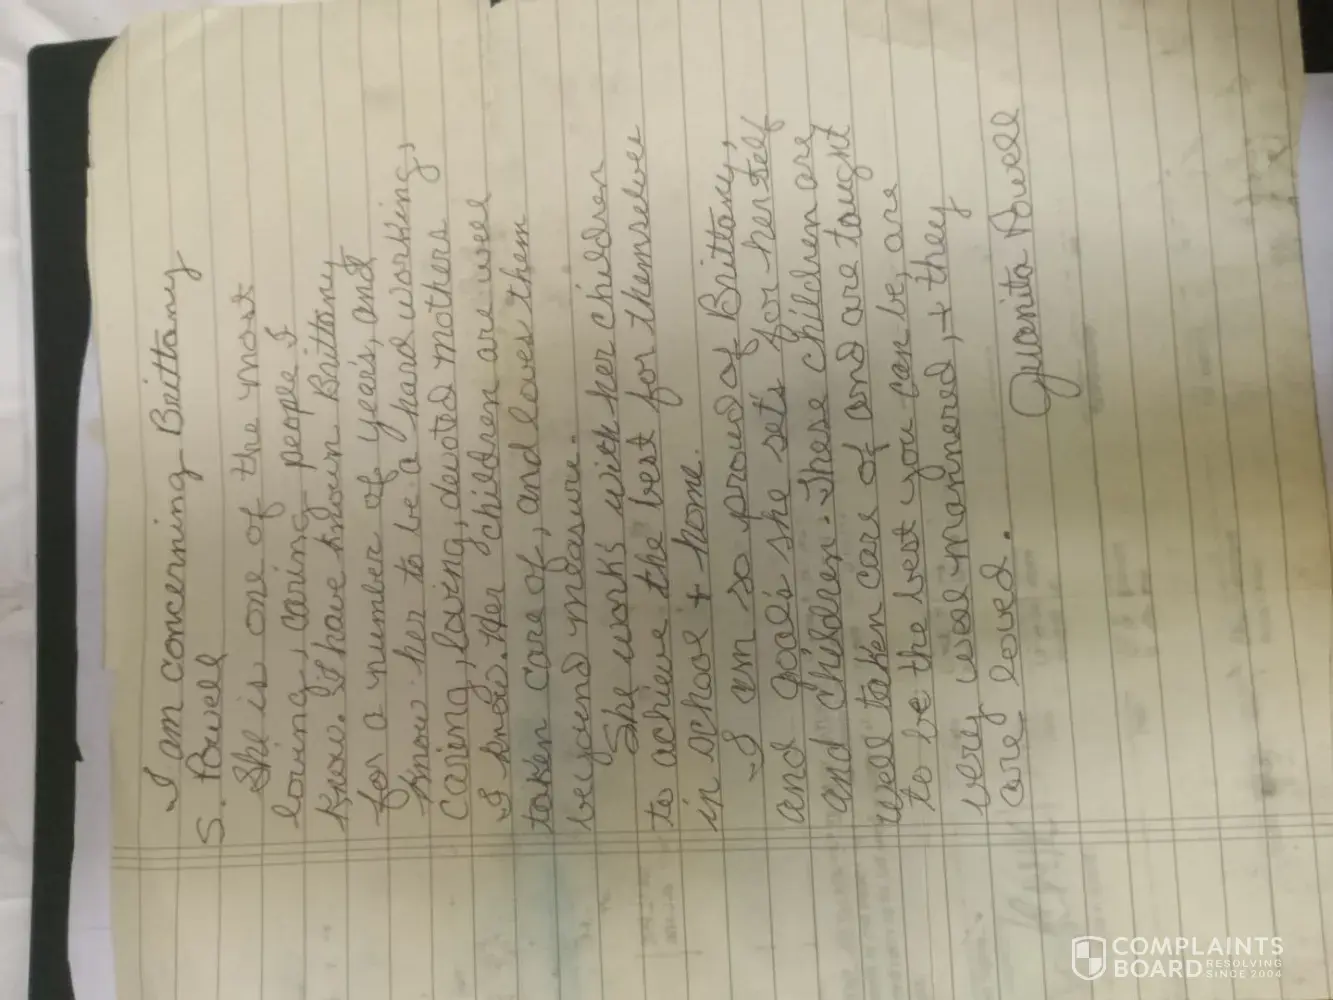 I am concerning Brittany
S. Powell
She is one of the most
loving, caring people I
know. I have known Brittany
for a number of years, and
know her to be a hard working,
caring, loving, devoted mothers
I know. Her children are well
taken care of, and loves them
beyond measure.
She works with her children
to achieve the best for themselves
in school + home.
I am so proud of Brittany,
and goals she sets for herself
and children. These children are
well taken care of and are taught
to be the best you can be, are
very well mannered, + they
are loved.
Juanita Powell
COMPLAINTS
BOARD RESOLVING
SINCE 2004